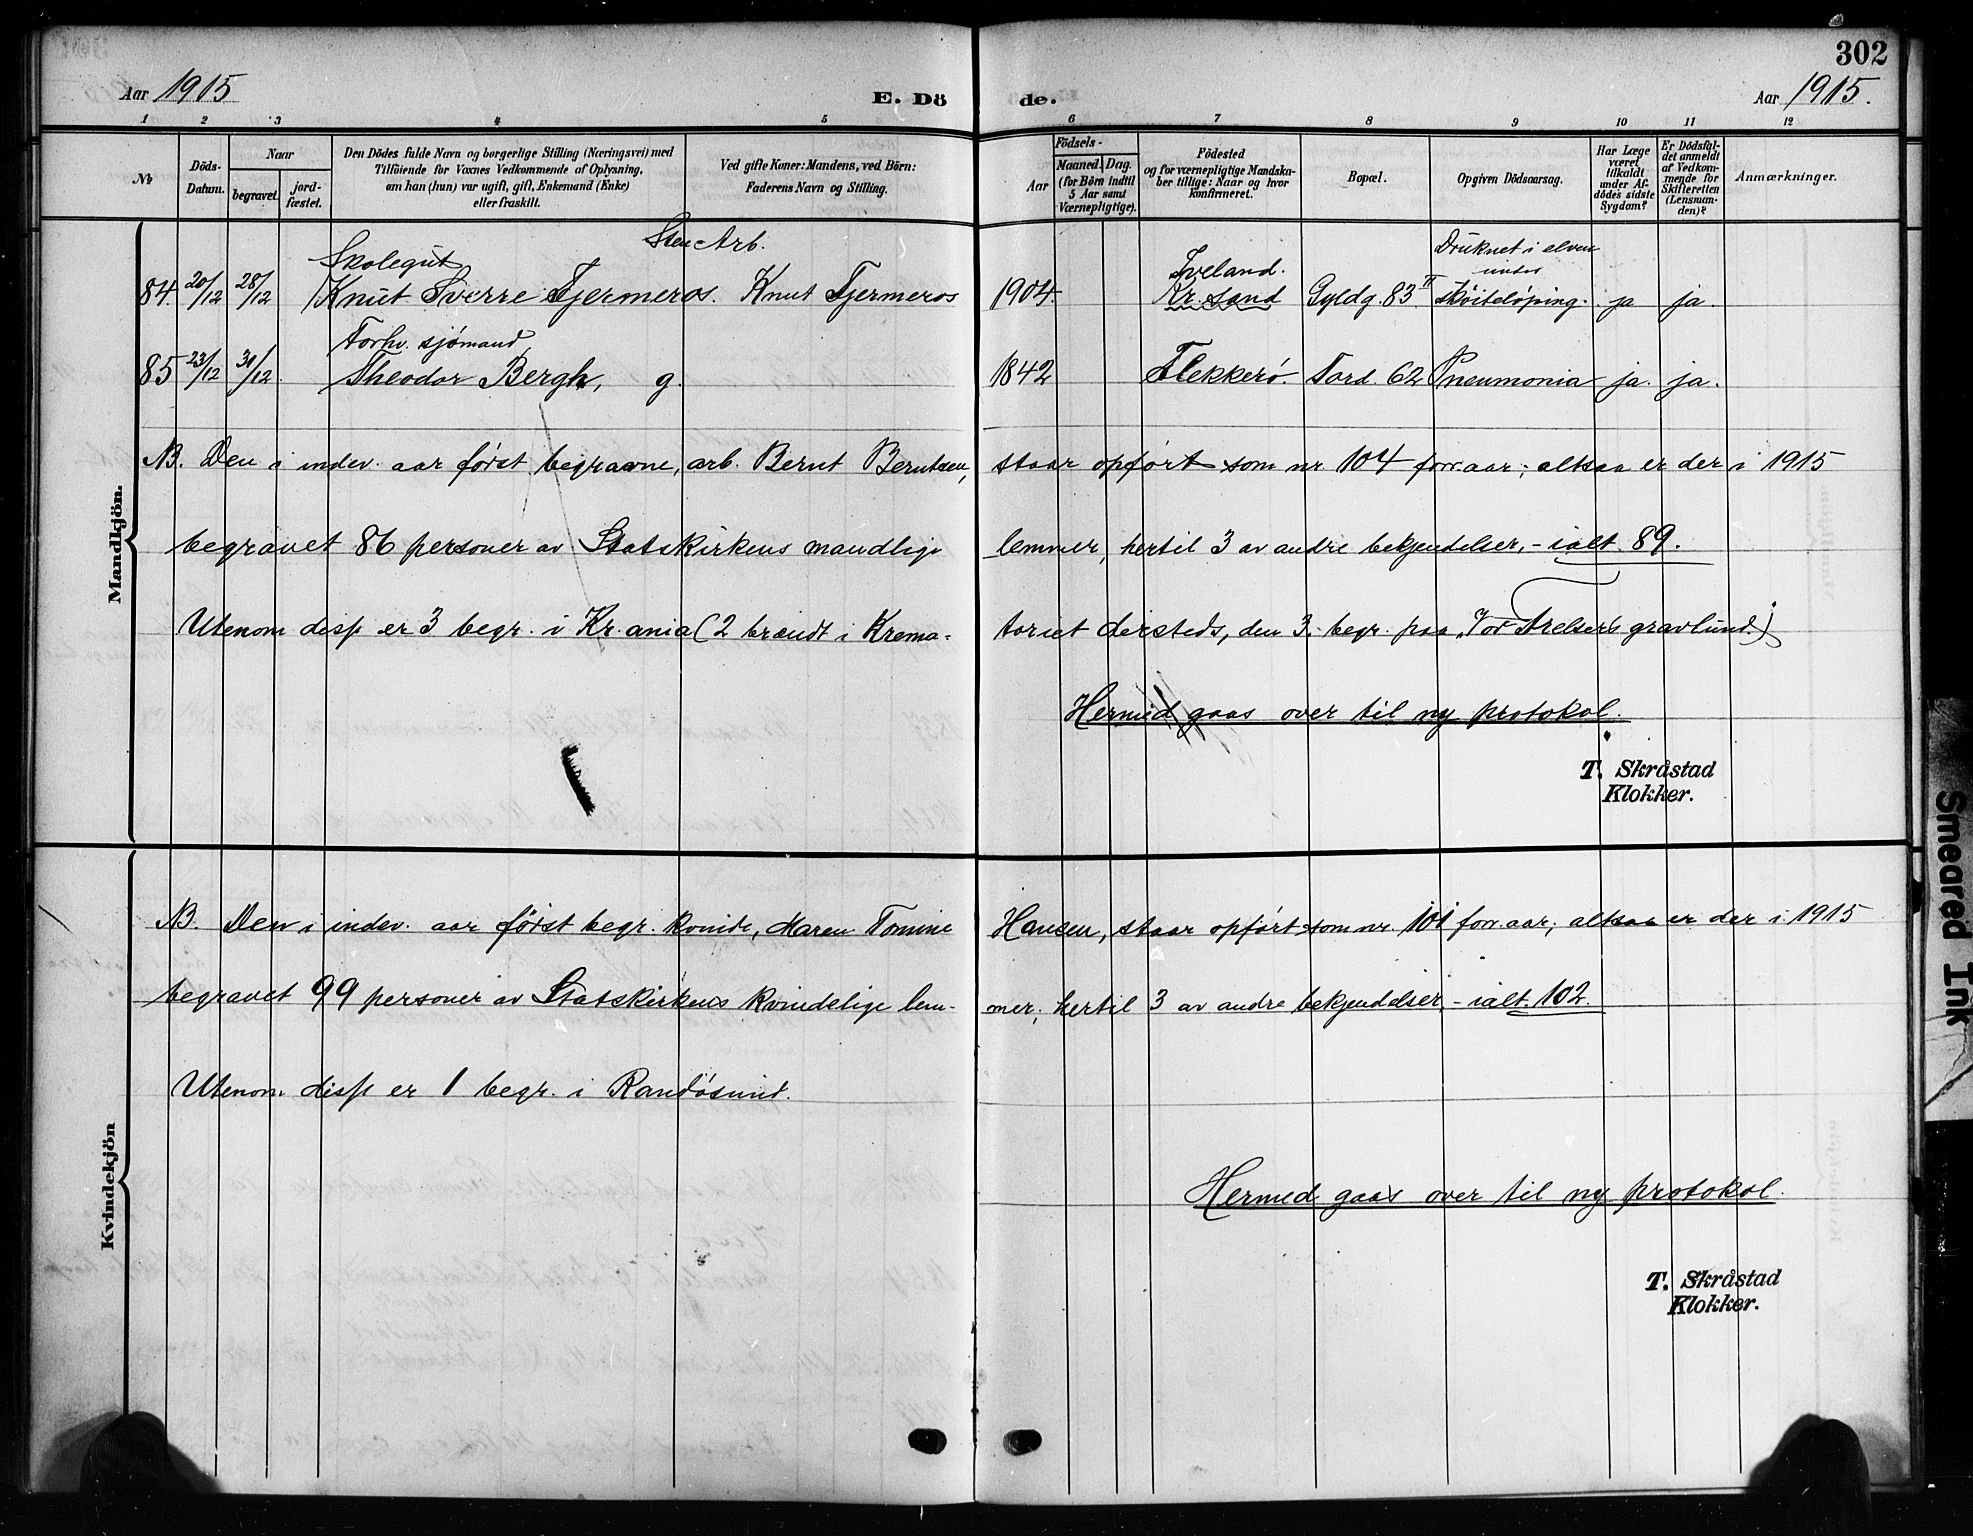 302
Aar 1915
E. Dö
de.
Aar 1915.
1 2 3 4 5 6 7 8 9 10 11 12
Nr.
Döds-Datum.
Naar
begravet.
jord-fæstet.
Den Dödes fulde Navn og borgerlige Stilling (Næringsvei) med
Tilföiende for Voxnes Vedkommende af Oplysning,
om han (hun) var ugift, gift, Enkemand (Enke)
eller fraskilt.
Ved gifte Koner: Mandens, ved Börn:
Faderens Navn og Stilling.
Födsels-
Aar
Maaned.
Dag.
(for Börn indtil
5 Aar samt
Værnepligtige).
Födested
og for værnepligtige Mandska-
ber tillige: Naar og hvor
konfirmeret.
Bopæl.
Opgiven Dödsaarsag.
Har Læge
været
tilkaldt
under Af-
dödes sidste
Sygdom?
Er Dödsfal-
det anmeldt
af Vedkom-
mende for
Skifteretten
(Lensman-
den)?
Anmærkninger.
Mandkjön.
Skolegut Sten Arb. Iveland. Druknet i elven under
84. 20/12 28/12 Knut Sverre Tjermeros. Knut Tjermeros 1904. Kr.sand Gyldg. 83 II Skøiteløping. ja ja.
Forhv. sjömand,
85 23/12 31/12 Theodor Bergh, g. 1842 Flekkerö. Tord. 62 Pneumonia ja. ja.
NB. Den i indev. aar først begravne, arb. Bernt Berntsen, staar opført som nr. 104 forr. aar; altsaa er der i 1915
begravet 86 personer av Statskirkens mandlige lemmer, hertil 3 av andre bekjendelser, - ialt 89.
Utenom disse er 3 begr. i Kr.ania (2 brændt i Krema-toriet dersteds, den 3. begr. paa "Vor Frelser's gravlund.")
Hermed gaas over til ny protokol.
T. Skråstad
Klokker.
Kvindekjön
NB. Den i indev. aar først begr. kvinde, Maren Tomine Hansen, staar opført som nr. 101 forr. aar; altsaa er der i 1915
begravet 99 personer av Statskirkens kvindelige lem-mer; hertil 3 av andre bekjendelser, - ialt 102.
Utenom disse er 1 begr. i Randösund.
Hermed gaas over til ny protokol.
T. Skråstad
Klokker.
Smeared Ink